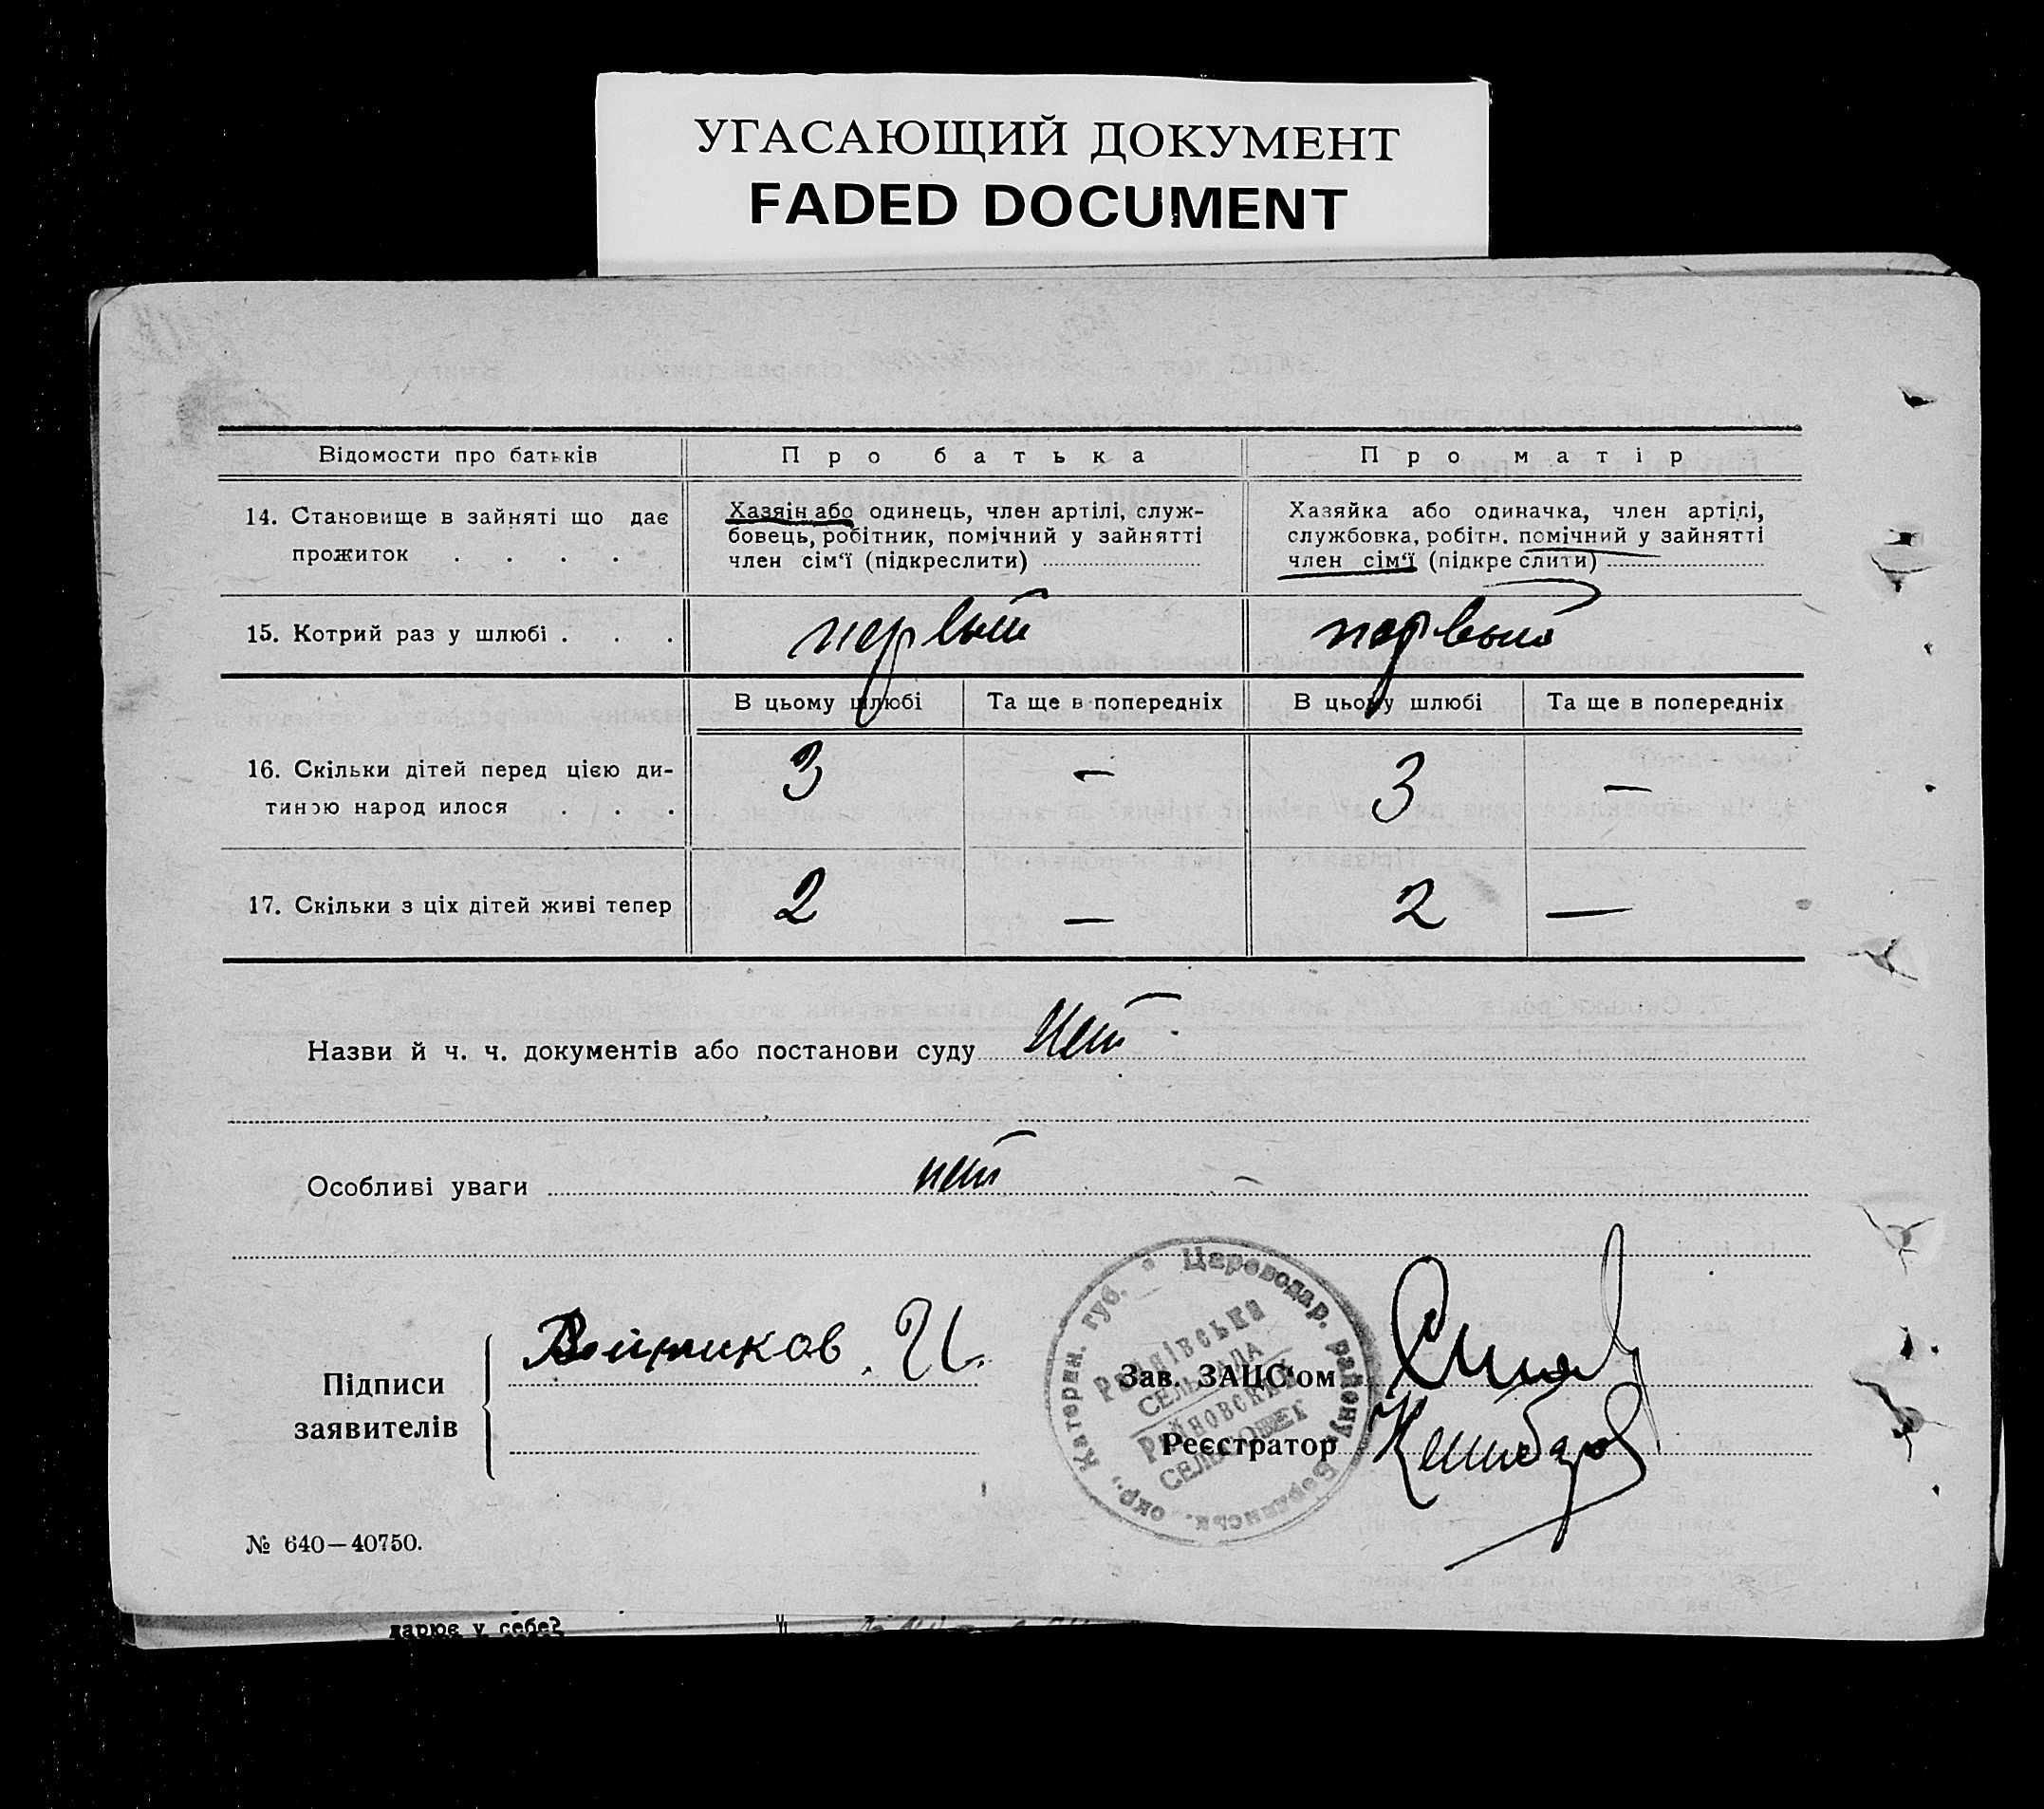 УГАСАЮЩИЙ ДОКУМЕНТ
FADED DOCUMENT
Відомости про батьків
Про батька
Про матір
14. Становище в зайняті що дає
прожиток . . . .
Хазяін або одинець, член артілі, служ-
бовець, робітник, помічний у зайнятті
член сім'ї (підкреслити)
Хазяйка або одиначка, член артілі,
службовка, робітн. помічний у зайнятті
член сім'ї (підкре слити)
15. Котрий раз у шлюбі . . .
первый
первый
В цьому шлюбі
Та ще в попередніх
В цьому шлюбі
Та ще в попередніх
16. Скільки дітей перед цією ди-
тиною народ илося . . .
3
—
3
—
17. Скільки з ціх дітей живі тепер
2
—
2
—
Назви й ч. ч. документів або постанови суду нет
Особливі уваги нет
Підписи
заявителів
И.
Зав. ЗАЦС'ом
Реєстратор
Катерин. губ. * Цареводар. району, Бердянськ. окр.,
СЕЛЬРАДА
№ 640—40750.
дарює у себе?